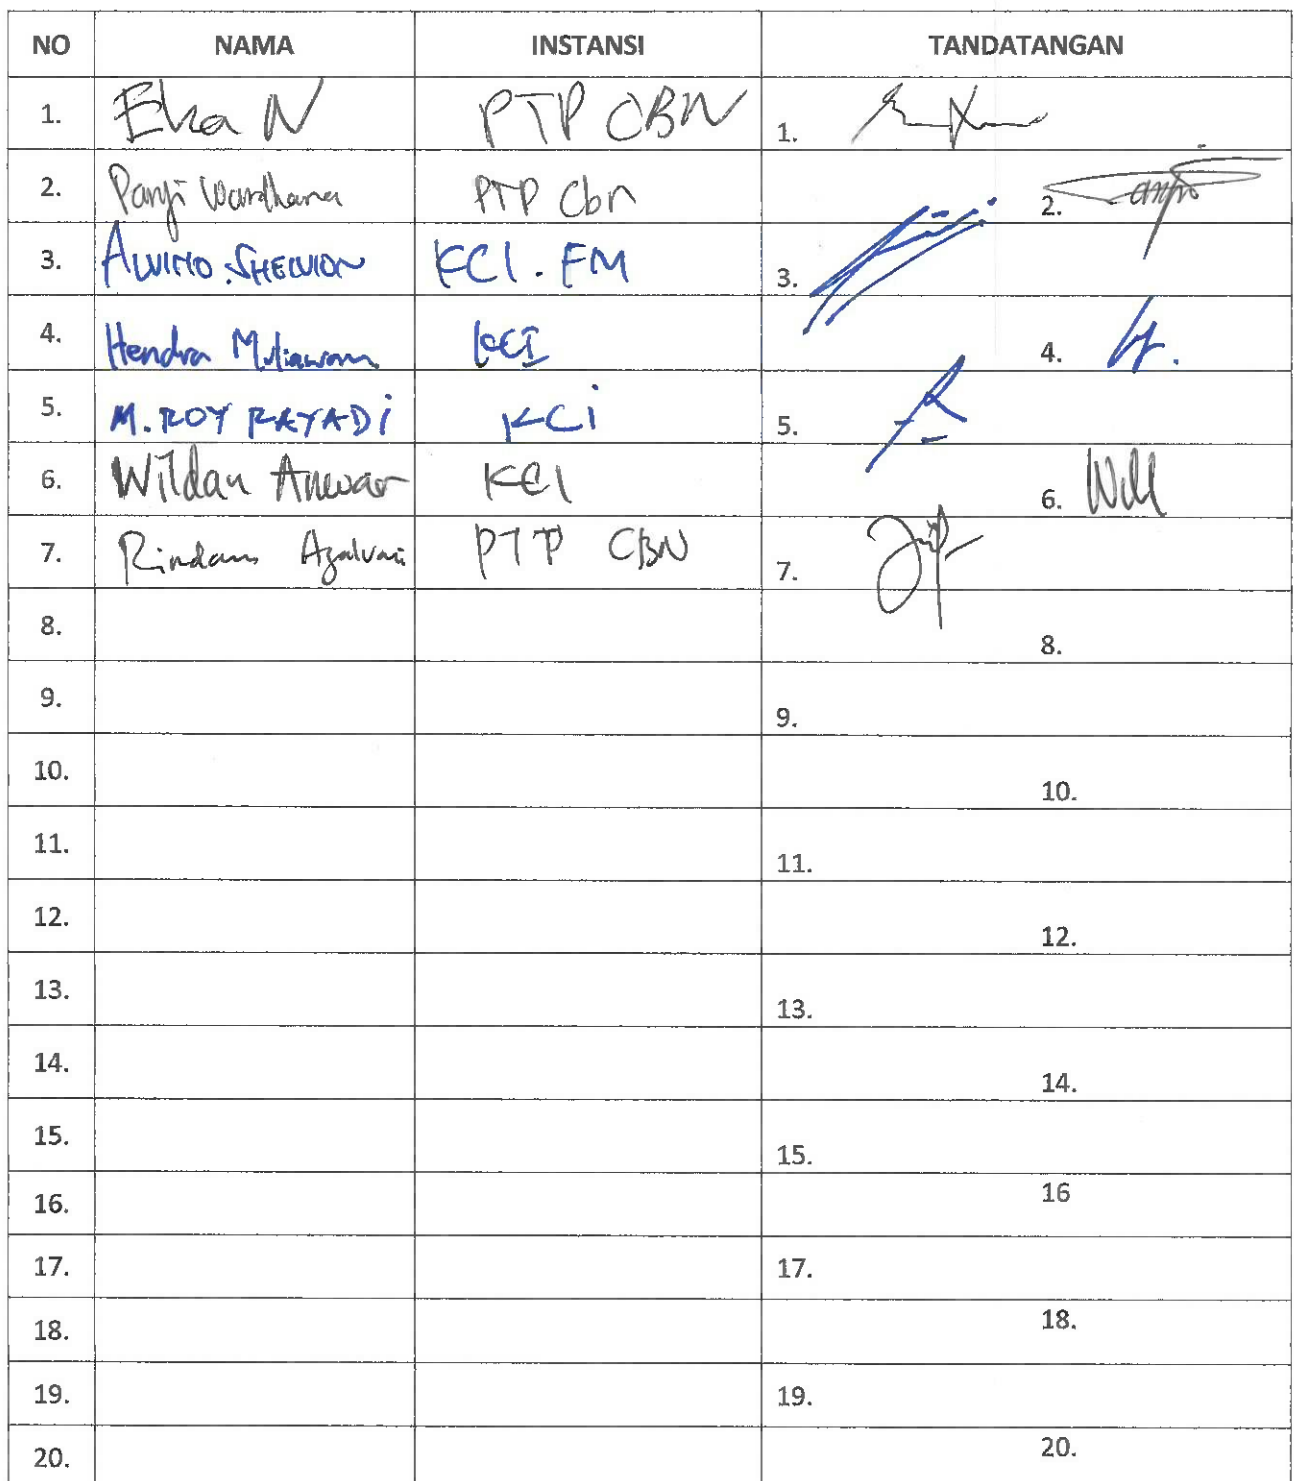 NO NAMA INSTANSI TANDATANGAN
1. Eka N PTP CBN 1.
2. Panji Wardhana PTP Cbn 2.
3. ALVINO.SHELVION KCI.FM 3.
4. Hendra Muliawan KCI 4.
5. M.ROY RAYADi KCi 5.
6. Wildan Anwar KCI 6.
7. PTP CBN 7.
8. 8.
9. 9.
10. 10.
11. 11.
12. 12.
13. 13.
14. 14.
15. 15.
16. 16
17. 17.
18. 18.
19. 19.
20. 20.